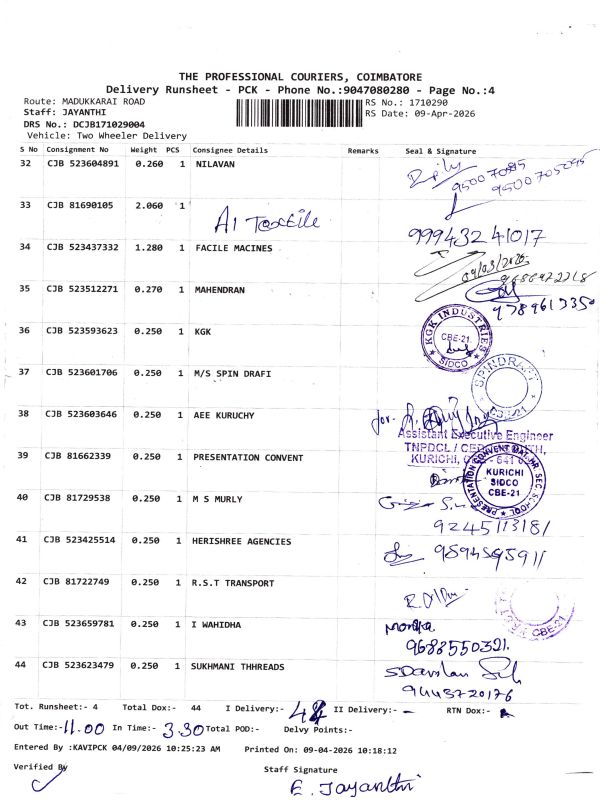 THE PROFESSIONAL COURIERS, COIMBATORE
Delivery Runsheet - PCK - Phone No.:9047080280 - Page No.:4
Route: MADUKKARAI ROAD RS No.: 1710290
Staff: JAYANTHI RS Date: 09-Apr-2026
DRS No.: DCJB171029004
Vehicle: Two Wheeler Delivery
S No Consignment No Weight PCS Consignee Details Remarks Seal & Signature
32 CJB 523604891 0.260 1 NILAVAN
33 CJB 81690105 2.060 1
A1 Textile
34 CJB 523437332 1.280 1 FACILE MACINES
35 CJB 523512271 0.270 1 MAHENDRAN
36 CJB 523593623 0.250 1 KGK
KGK INDUSTRIES
CBE-21.
SIDCO
37 CJB 523601706 0.250 1 M/S SPIN DRAFI
SPINDRAFT
CBE-21
38 CJB 523603646 0.250 1 AEE KURUCHY
for.
Assistant Executive Engineer
TNPDCL /
KURICHI,
39 CJB 81662339 0.250 1 PRESENTATION CONVENT
PRESENTATION CONVENT MAT. HR. SEC. SCHOOL
KURICHI
SIDCO
CBE-21
40 CJB 81729538 0.250 1 M S MURLY
9245113181
41 CJB 523425514 0.250 1 HERISHREE AGENCIES
42 CJB 81722749 0.250 1 R.S.T TRANSPORT
CBE-21
43 CJB 523659781 0.250 1 I WAHIDHA
9688550321.
44 CJB 523623479 0.250 1 SUKHMANI THHREADS
9443720176
Tot. Runsheet:- 4 Total Dox:- 44 I Delivery:- II Delivery:- – RTN Dox:-
Out Time:- 11.00 In Time:- 3.30 Total POD:- Delvy Points:-
Entered By :KAVIPCK 04/09/2026 10:25:23 AM Printed On: 09-04-2026 10:18:12
Verified By Staff Signature
E. Jayanthi